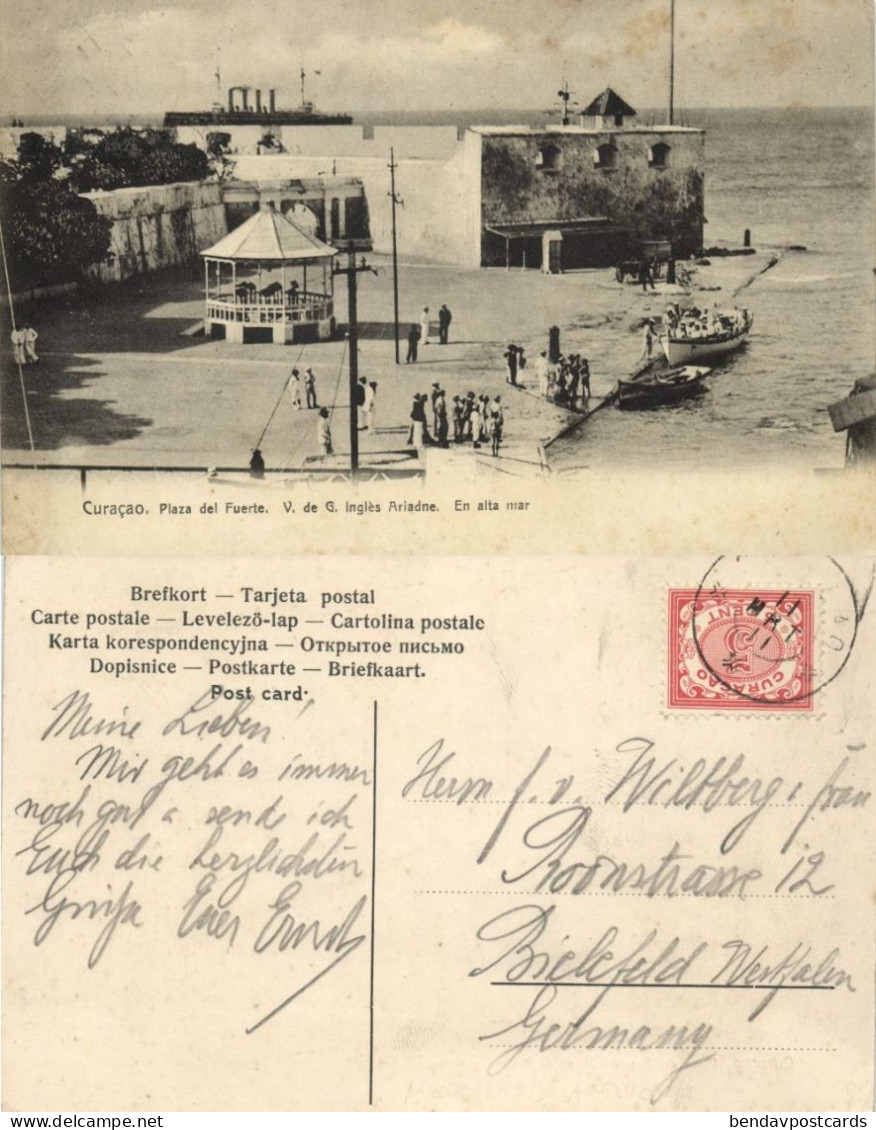 Curaçao. Plaza del Fuerte. V. de G. Inglès Ariadne. En alta mar
Brefkort — Tarjeta postal
Carte postale — Levelezö-lap — Cartolina postale
Karta korespondencyjna — Открытое письмо
Dopisnice — Postkarte — Briefkaart.
Post card.
CENT
5
CURAÇAO
11
MRT
11
Meine Lieben!
Mir geht es immer
noch gut & sende ich
Euch die herzlichsten
Grüsse Euer Ernst
Herrn f. v. Wiltberg & frau
Roonstrasse 12
Bielefeld Westfalen
Germany
DELCAMPE.NET
bendavpostcards